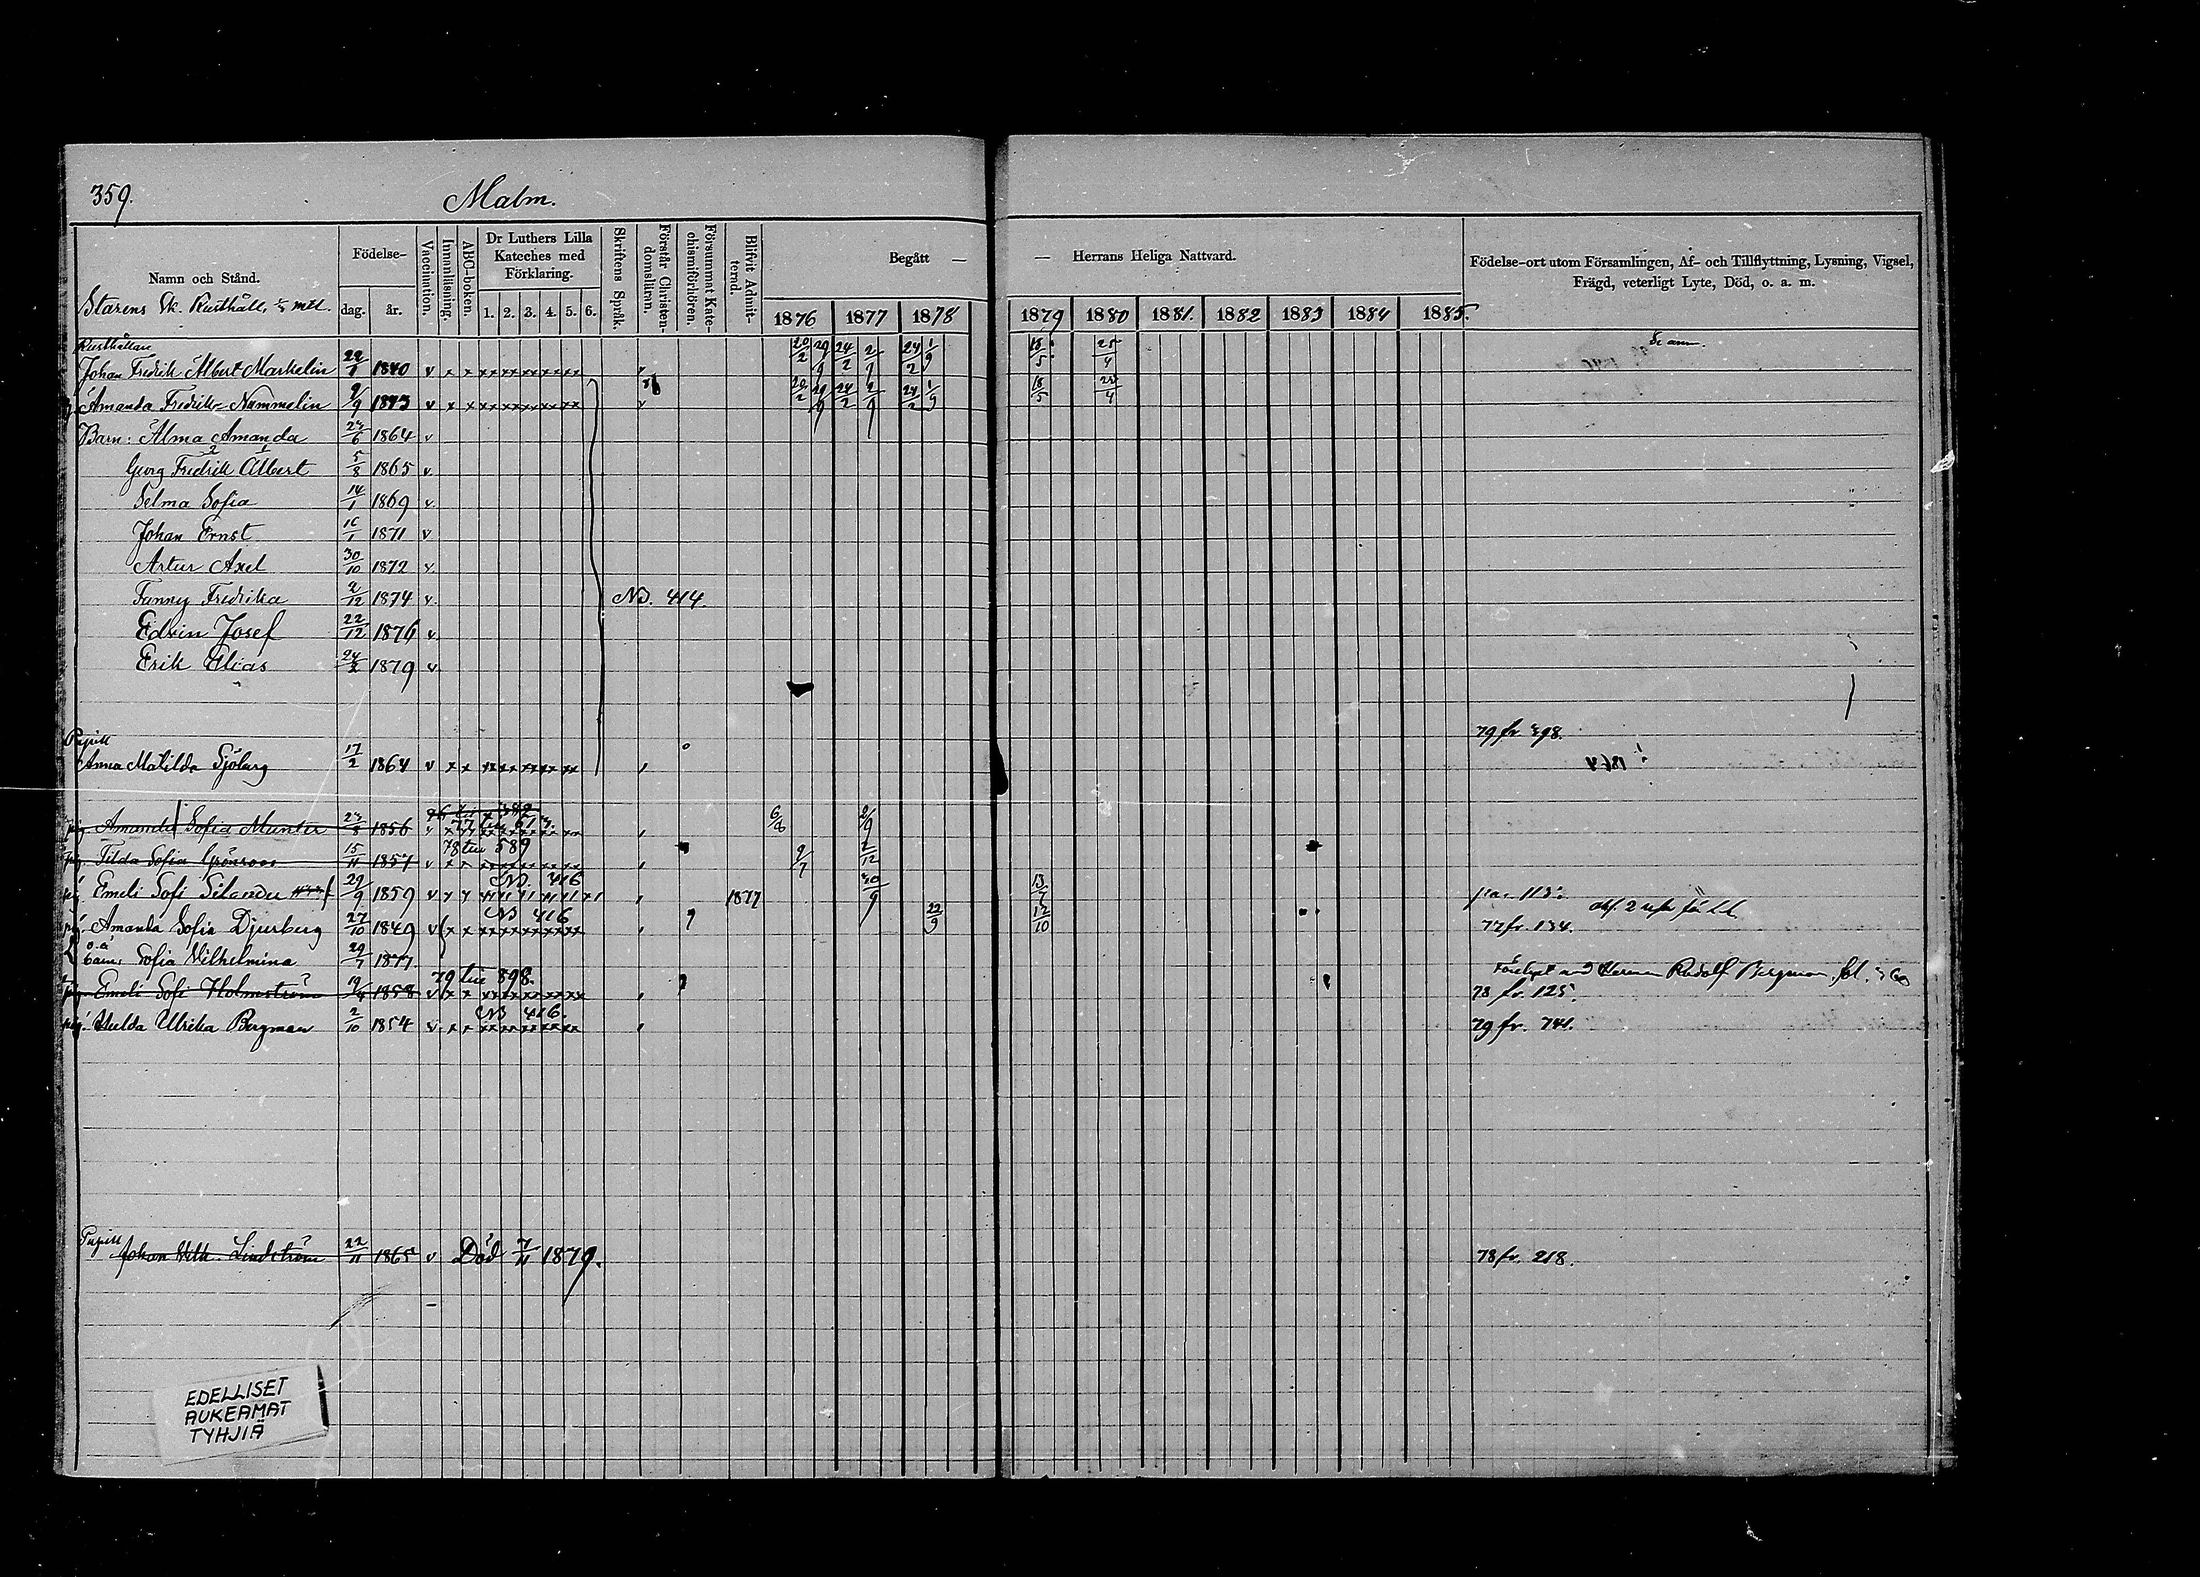 359.
Malm.
Namn och Stånd.
Födelse-
dag.
år.
Vaccination.
Innanläsning.
ABC-boken.
Dr Luthers Lilla
Kateches med
Förklaring.
1. 2. 3. 4. 5. 6.
Skriftens Språk.
Förstår Christen-
domsläran.
Försummat Kate-
chismiförhören.
Blifvit Admit-
terad.
Begått —
— Herrans Heliga Nattvard.
1876 1877 1878
1879 1880 1881. 1882 1883 1884 1885.
Födelse-ort utom Församlingen, Af- och Tillflyttning, Lysning, Vigsel,
Frägd, veterligt Lyte, Död, o. a. m.
Starens Sk. Rusthåll, mtl.
Rusthållare
Johan Fredrik Albert Markelin 22/1 1840 v 20/2 29/9 24/2 2/9 24/2 1/9 18/5 25/4
Amanda Fredrika Nummelin 9/9 1843 v 20/2 29/9 24/2 2/9 24/2 1/9 18/5 25/4
Barn: Alma Amanda 1864 v
Georg Fredrik Albert 5/8 1865 v.
Selma Sofia 14/1 1869 v.
Johan Ernst 16/1 1871 v
Artur Axel 30/10 1872 v.
Fanny Fredrika 2/12 1874 v. NB. 414.
Edvin Josef 22/12 1876 v
Erik Elias 24/2 1879 v.
79 fr 398.
Anna Matilda Sjöberg 17/2 1864 v
1864
76 till 382
77 till 613.
pig. Amanda Sofia Munter 1856 v 6/8 2/9
78 till 589
pig. Tilda Sofia Grönroos 15/11 1857 v 9/7 2/12
NB. 416
pig. Emeli Sofi Silander 29/9 1859 v 1877 30/9 13/7
NB 416
pig. Amanda Sofia Djurberg 27/10 1849 v 22/9 12/10 77 fr. 134.
o.ä.
barn: Sofia Vilhelmina 29/7 1877
79 till 898.
pig. Emeli Sofi Holmström 1858 v 78 fr. 125.
Rudolf Bergman
NB 416.
pig. Hulda Ulrika Bergman 2/10 1854 v. 79 fr. 741.
Pupill
Johan Vilh. Lindström 22/11 1865 v Död 7/11 1879. 78 fr. 218.
EDELLISET
AUKEAMAT
TYHJIÄ